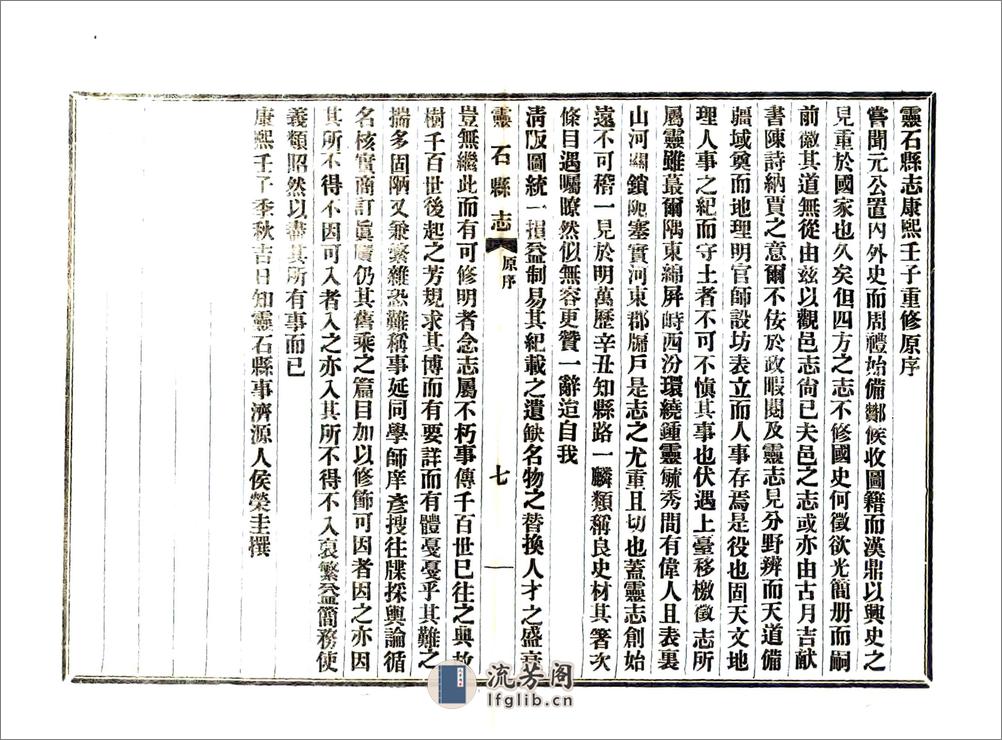 靈石縣志康熙壬子重修原序
嘗聞元公置內外史而周禮始備酇候收圖籍而漢鼎以興史之
見重於國家也久矣但四方之志不修國史何徵欲光簡册而嗣
前徽其道無從由兹以觀邑志尙已夫邑之志或亦由古月吉献
書陳詩納賈之意爾不侒於政暇閱及靈志見分野辨而天道備
疆域奠而地理明官師設坊表立而人事存焉是役也固天文地
理人事之紀而守土者不可不愼其事也伏遇上臺移檄徵志所
屬靈雖蕞爾隅東綿屏峙西汾環繞鍾靈毓秀間有偉人且表裏
山河關鎖阨塞實河東郡牖戶是志之尤重且切也蓋靈志創始
遠不可稽一見於明萬歷辛丑知縣路一麟類稱良史材其箸次
條目遇囑瞭然似無容更贊一辭迨自我
淸版圖統一損益制易其紀載之遺缺名物之替換人才之盛衰
靈石縣志
原序
七
豈無繼此而有可修明者念志屬不朽事傳千百世已往之典故
樹千百世後起之芳規求其博而有要詳而有體戞戞乎其難之
揣多固陋又兼繁雜恐難稱事延同學師庠彥搜往牒探輿論循
名核實商訂眞贋仍其舊乘之篇目加以修飾可因者因之亦因
其所不得不因可入者入之亦入其所不得不入裒繁益簡務使
義類昭然以盡其所有事而已
康熙壬子季秋吉日知靈石縣事濟源人侯榮圭撰
流芳阁
lfglib.cn